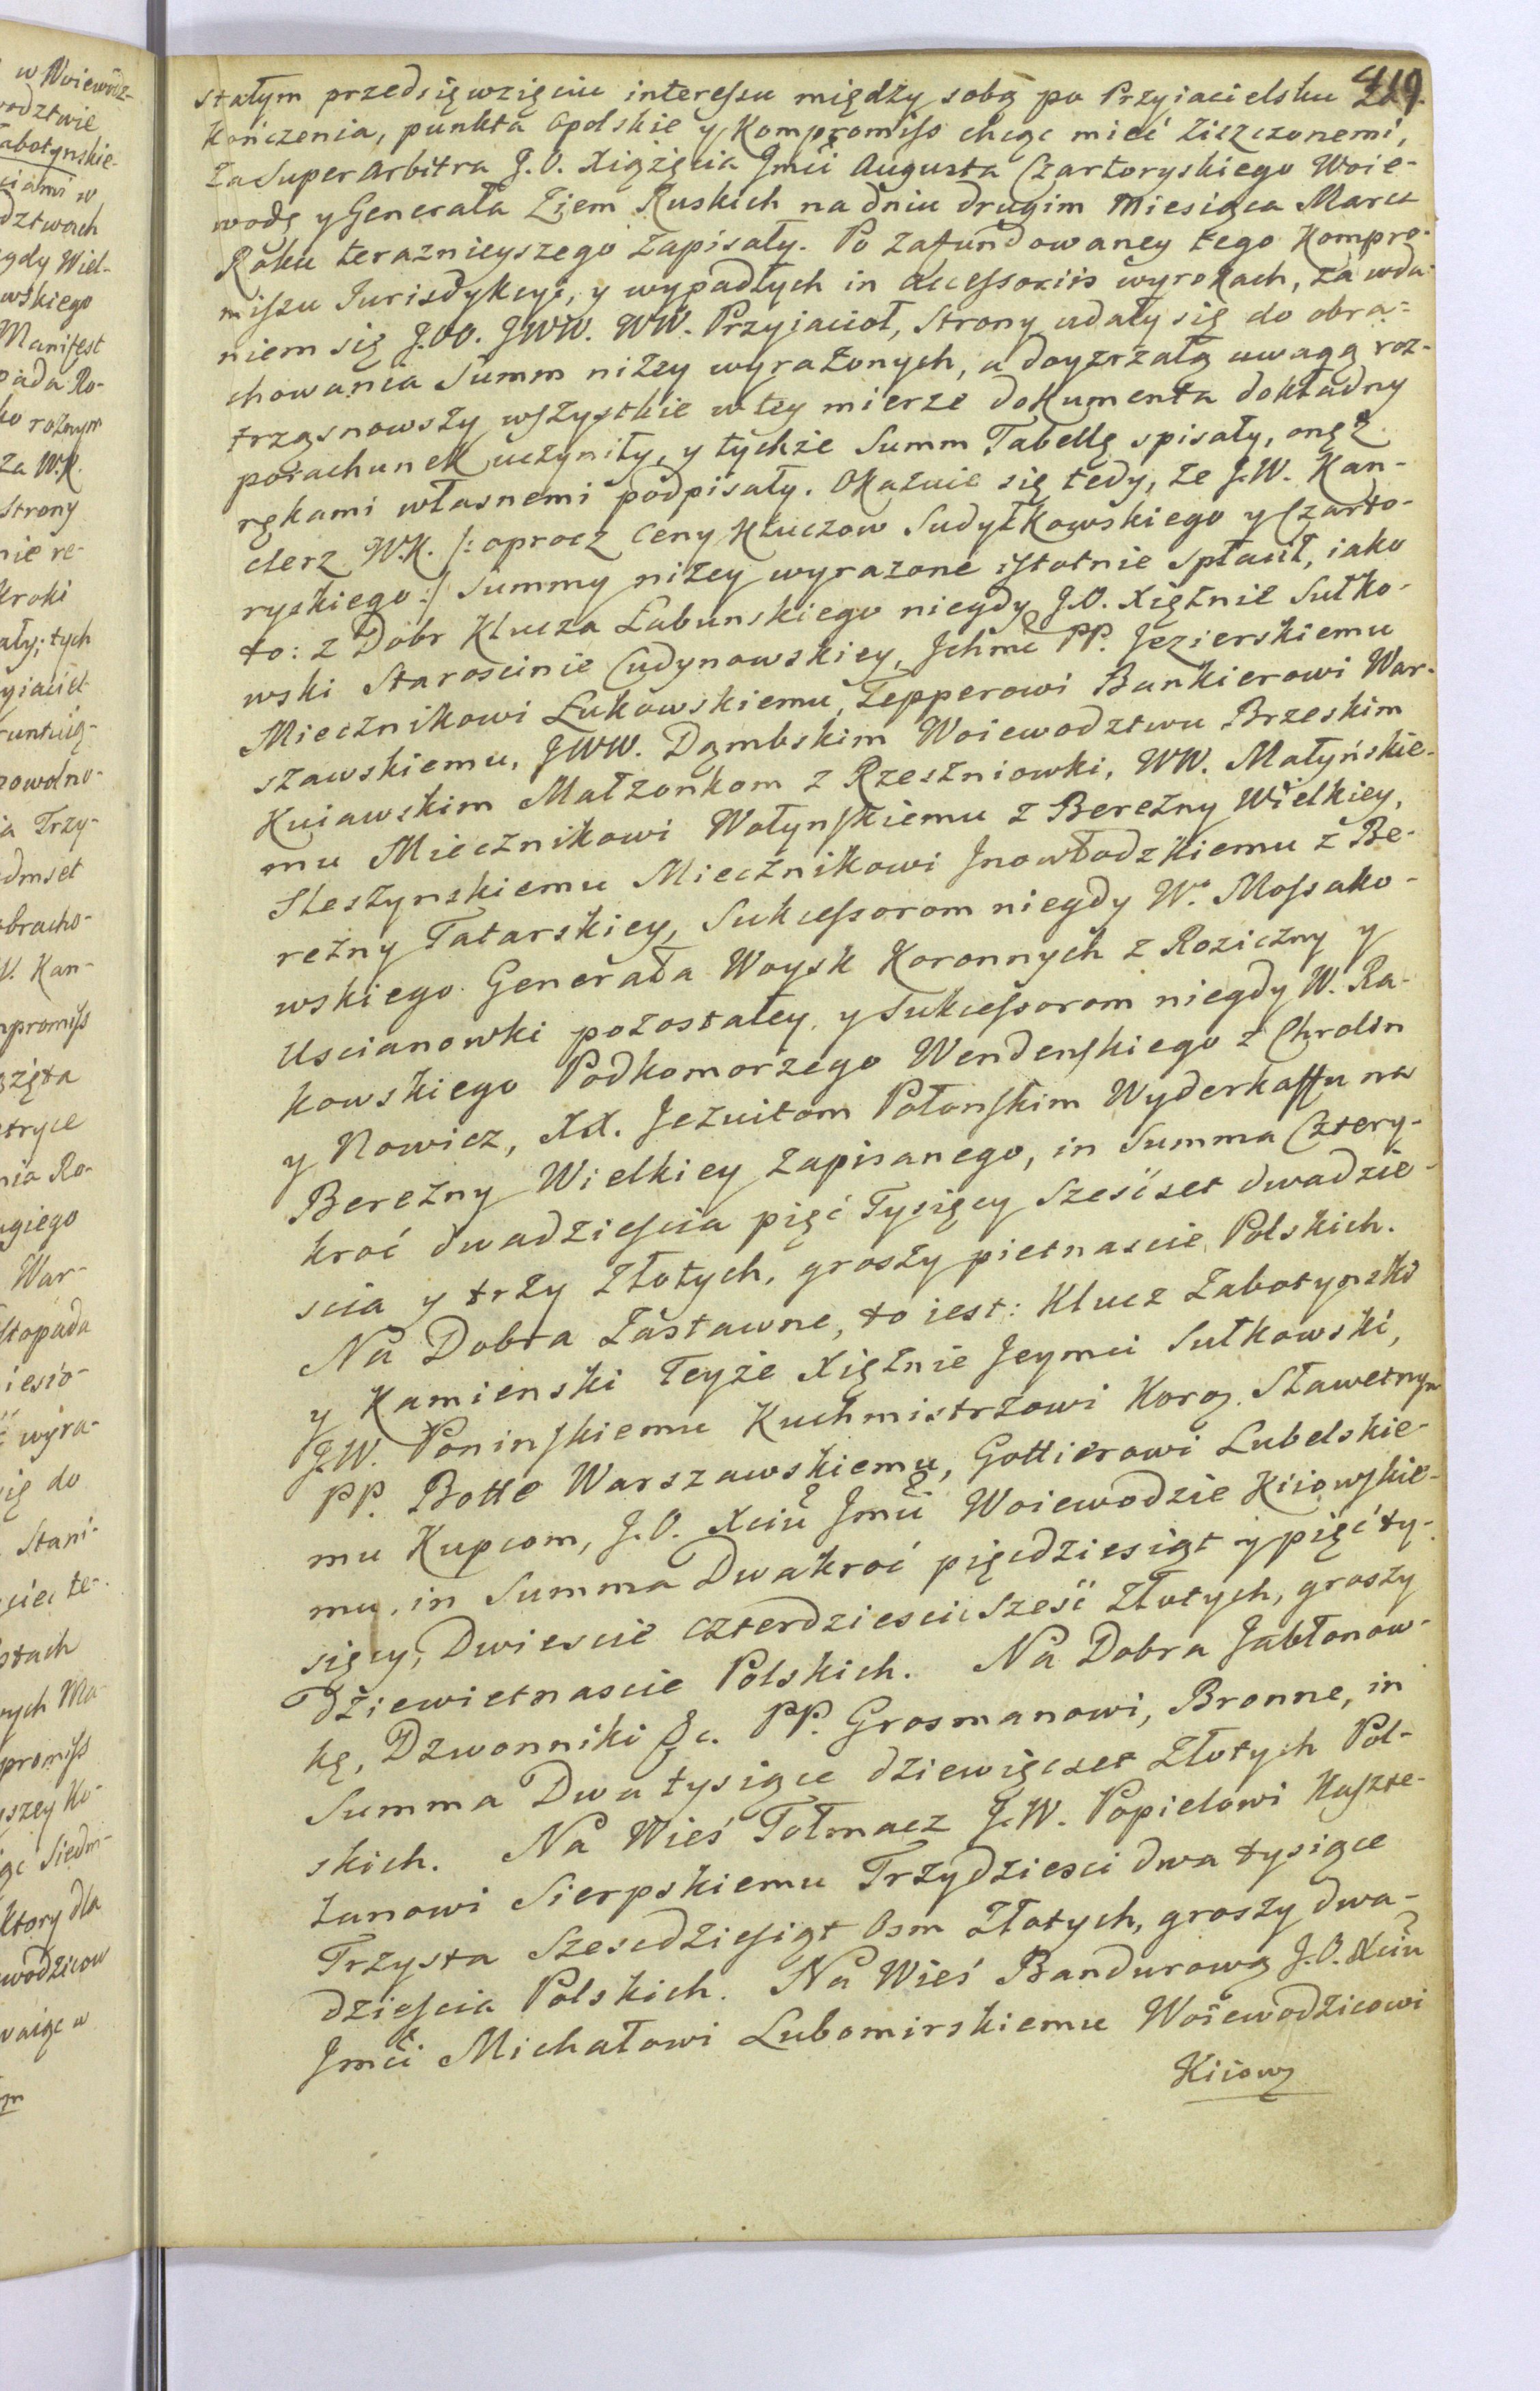 419.
stałym przedsięwzięciu interessu między sobą po Przyiacielsku
kończenia, punkta Opolskie y Kompromiss chcąc mieć ziszczonemi,
za Super Arbitra J. O. Xiążęcia Jmći Augusta Czartoryskiego Woie-
wodę y Generała Ziem Ruskich na dniu drugim Miesiąca Marca
Roku teraznieyszego zapisały. Po zafundowaney tego Kompro-
missu Jurisdykcyi, y wypadłych in accessoriis wyrokach, za wda-
niem się J.OO. JWW. WW. Przyiacioł, Strony udały się do obra-
chowania Summ niżey wyrażonych, a doyzrzałą uwagą roz-
trząsnowszy wszystkie w tey mierze dokumenta dokładny
porachunek uczyniły, y tychże Summ Tabellę spisały, onę
rękami własnemi podpisały. Okazuie się tedy, że J.W. Kan-
clerz W.K. /: oprocz Ceny Kluczow Sudyłkowskiego y Czarto-
ryskiego :/ Summy niżey wyrażone istotnie spłacił, iako
to: z Dobr Klucza Łabunskiego niegdy J.O. Xiężnie Sułko-
wski Starościnie Cudynowskiey, Jchmć PP. Jezierskiemu
Miecznikowi Łukowskiemu, Tepperowi Bankierowi War-
szawskiemu, JWW. Dąmbskim Woiewodztwu Brzeskim
Kuiawskim Małżonkom z Rzeszniowki, WW. Małyńskie-
mu Miecznikowi Wołynskiemu z Berezny Wielkiey,
Steszynskiemu Miecznikowi Jnowłodzkiemu z Be-
rezny Tatarskiey, Sukcessorom niegdy W. Mossako-
wskiego Generała Woysk Koronnych z Roziczny y
Uscianowki pozostałey, y Sukcessorom niegdy W. Ra-
kowskiego Podkomorzego Wendenskiego z Chrolin
y Nowicz, XX. Jezuitom Połonskim Wyderkaffu na
Berezny Wielkiey zapisanego, in Summa Cztery-
kroć dwadziescia pięć Tysięcy Sześćset dwadzie-
scia y trzy Złotych, groszy pietnascie Polskich.
Na Dobra Zastawne, to iest: Klucz Zabotynski
y Kamienski Teyże Xiężnie Jeymci Sułkowski,
J.W. Poninskiemu Kuchmistrzowi Koron. Sławetnym
PP. Botte Warszawskiemu, Gottierowi Lubelskie-
mu Kupcom, J.O. Xciu Jmći Woiewodzie Kiiowskie-
mu, in Summa Dwakroć pięćdziesiąt y pięć ty-
sięcy, Dwiescie czterdziescie Sześć Złotych, groszy
Dziewietnascie Polskich. Na Dobra Jabłonow-
kę, Dzwonniki &c. PP. Grosmanowi, Bronne, in
Summa Dwa tysiące dziewięćset Złotych Pol-
skich. Na Wieś Tołmacz J.W. Popielowi Kaszte-
lanowi Sierpskiemu Trzydziesci dwa tysiące
Trzysta Szescdziesiąt Osm Złotych, groszy dwa-
dziescia Polskich. Na Wieś Bandurową J.O. Xciu
Jmći Michałowi Lubomirskiemu Woiewodzicowi
Kiiows